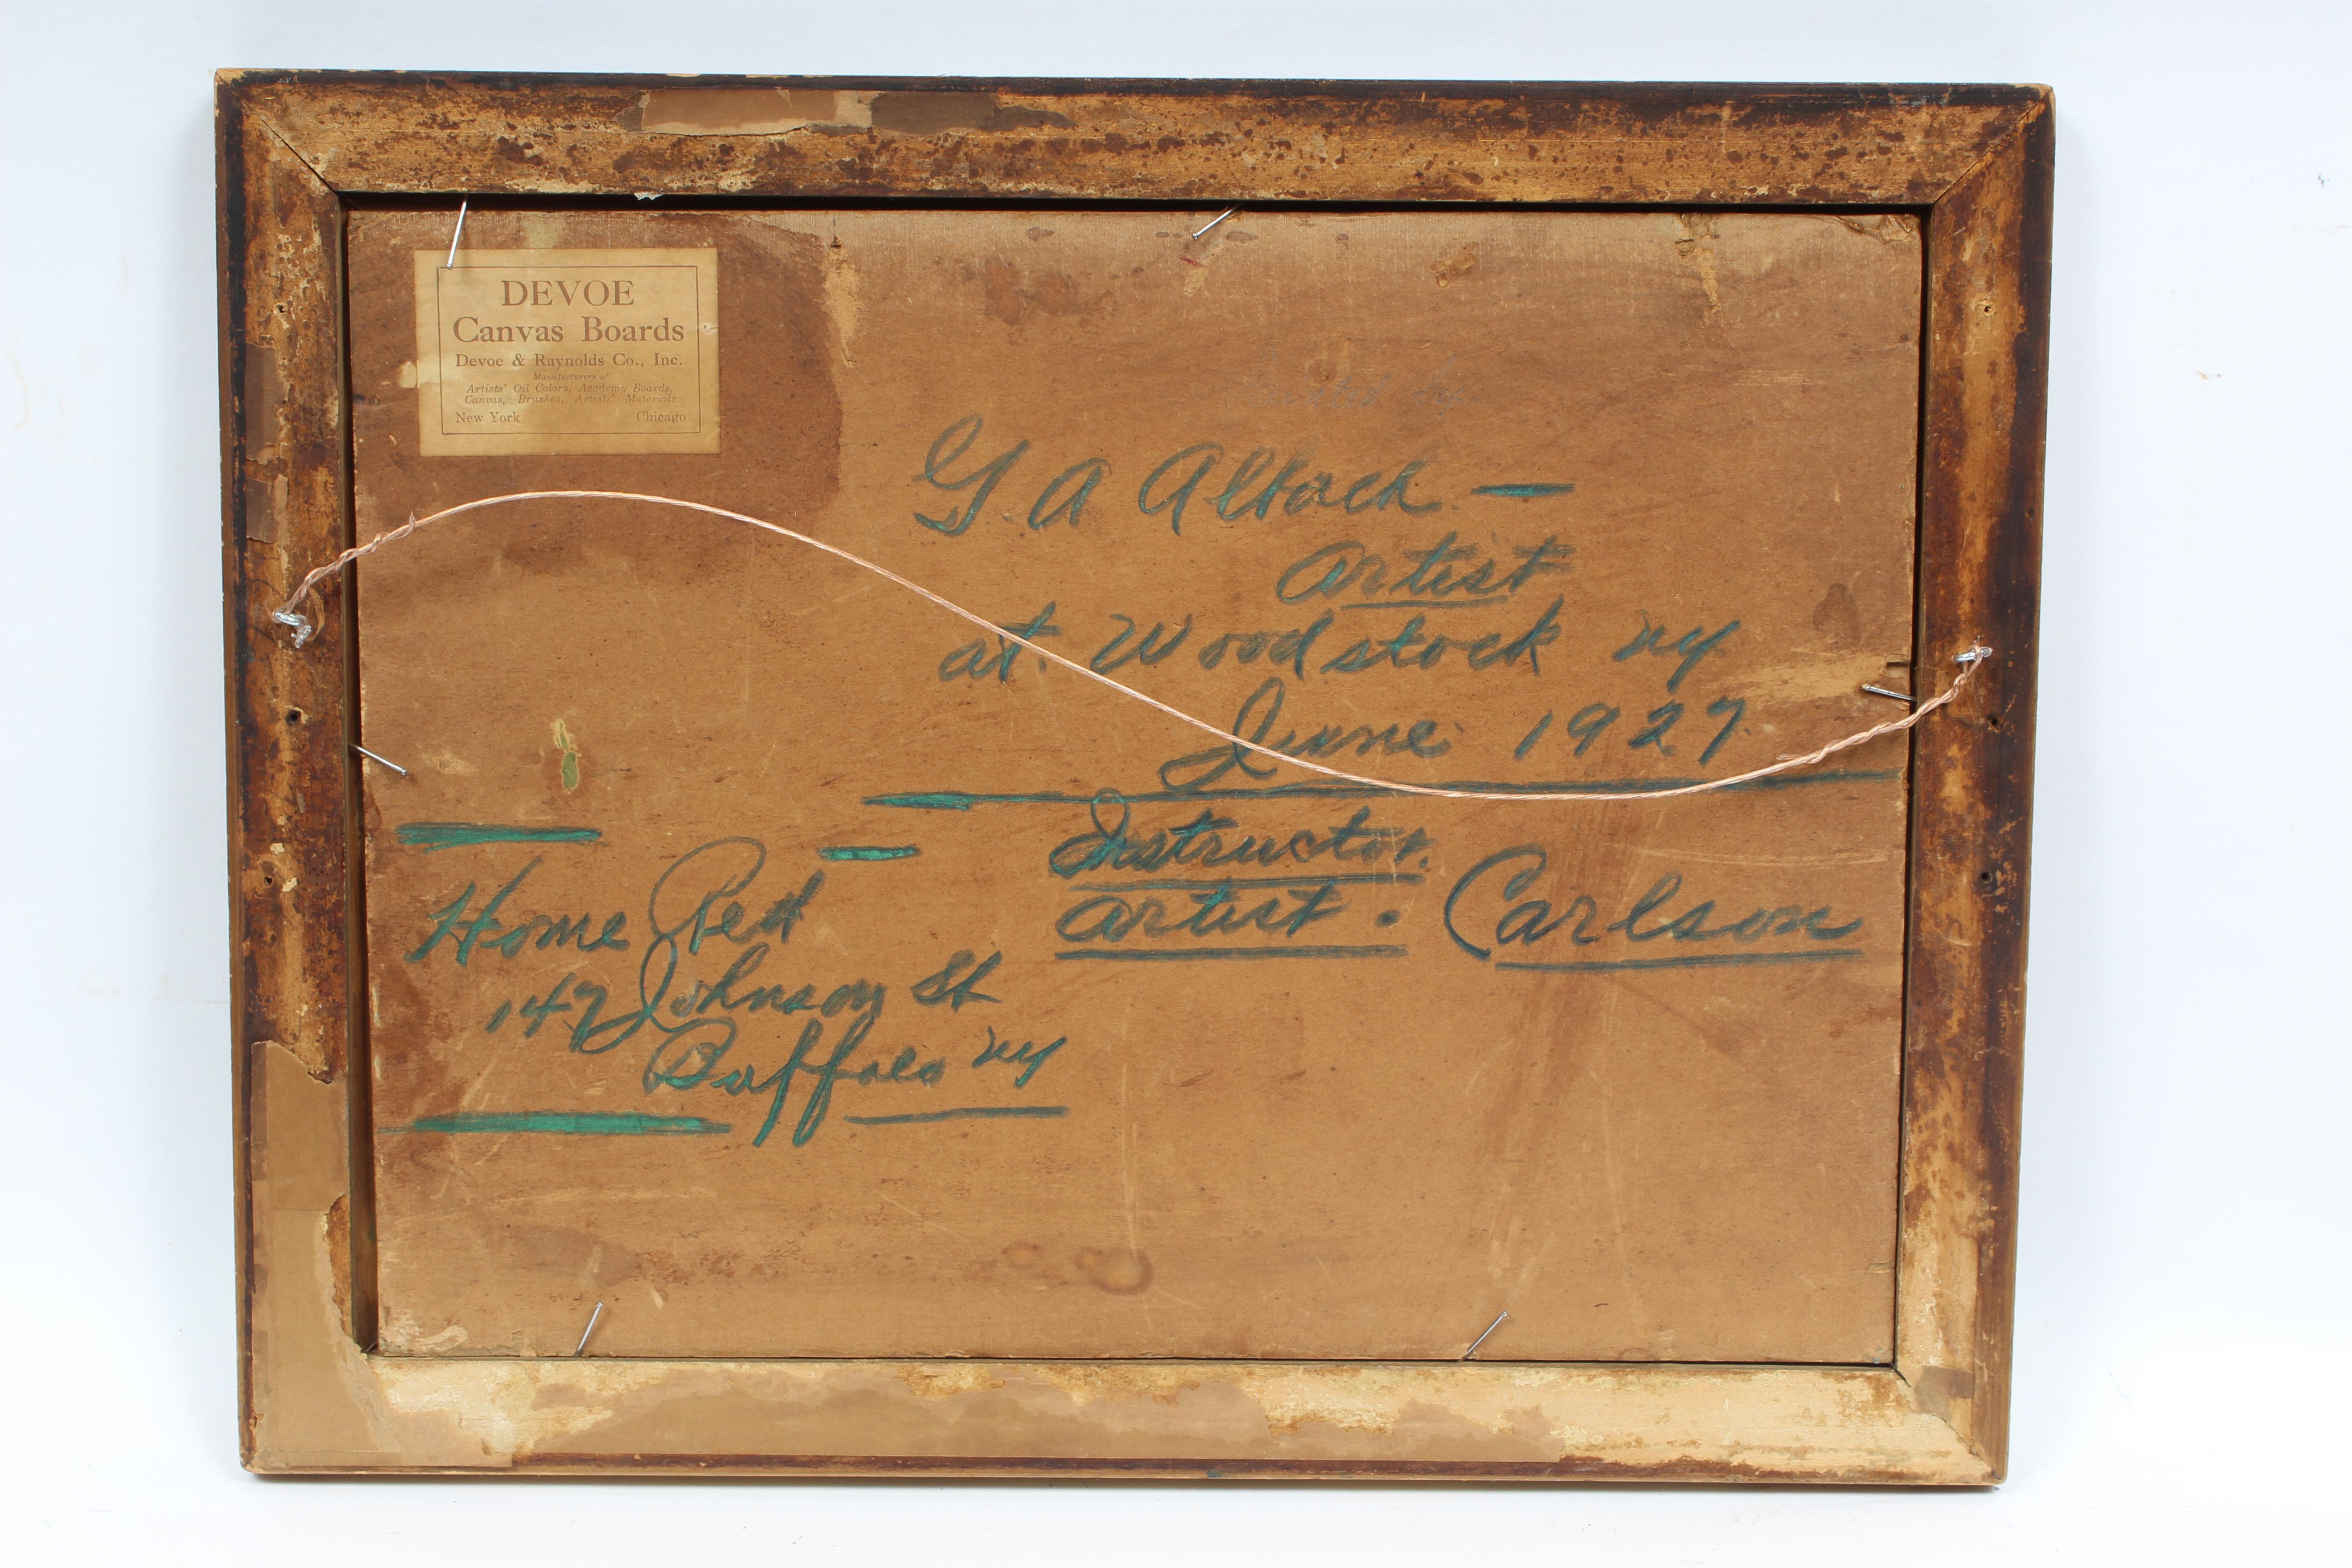 DEVOE
Canvas Boards
Devoe & Raynolds Co., Inc.
Manufacturers of
Artists' Oil Colors, Academy Boards,
Canvas, Brushes, Artists' Materials
New York Chicago
G. A Albach —
Artist
at. Woodstock NY
June 1927
Instructor.
Artist. Carlson
Home
147 Johnson St
Buffalo NY